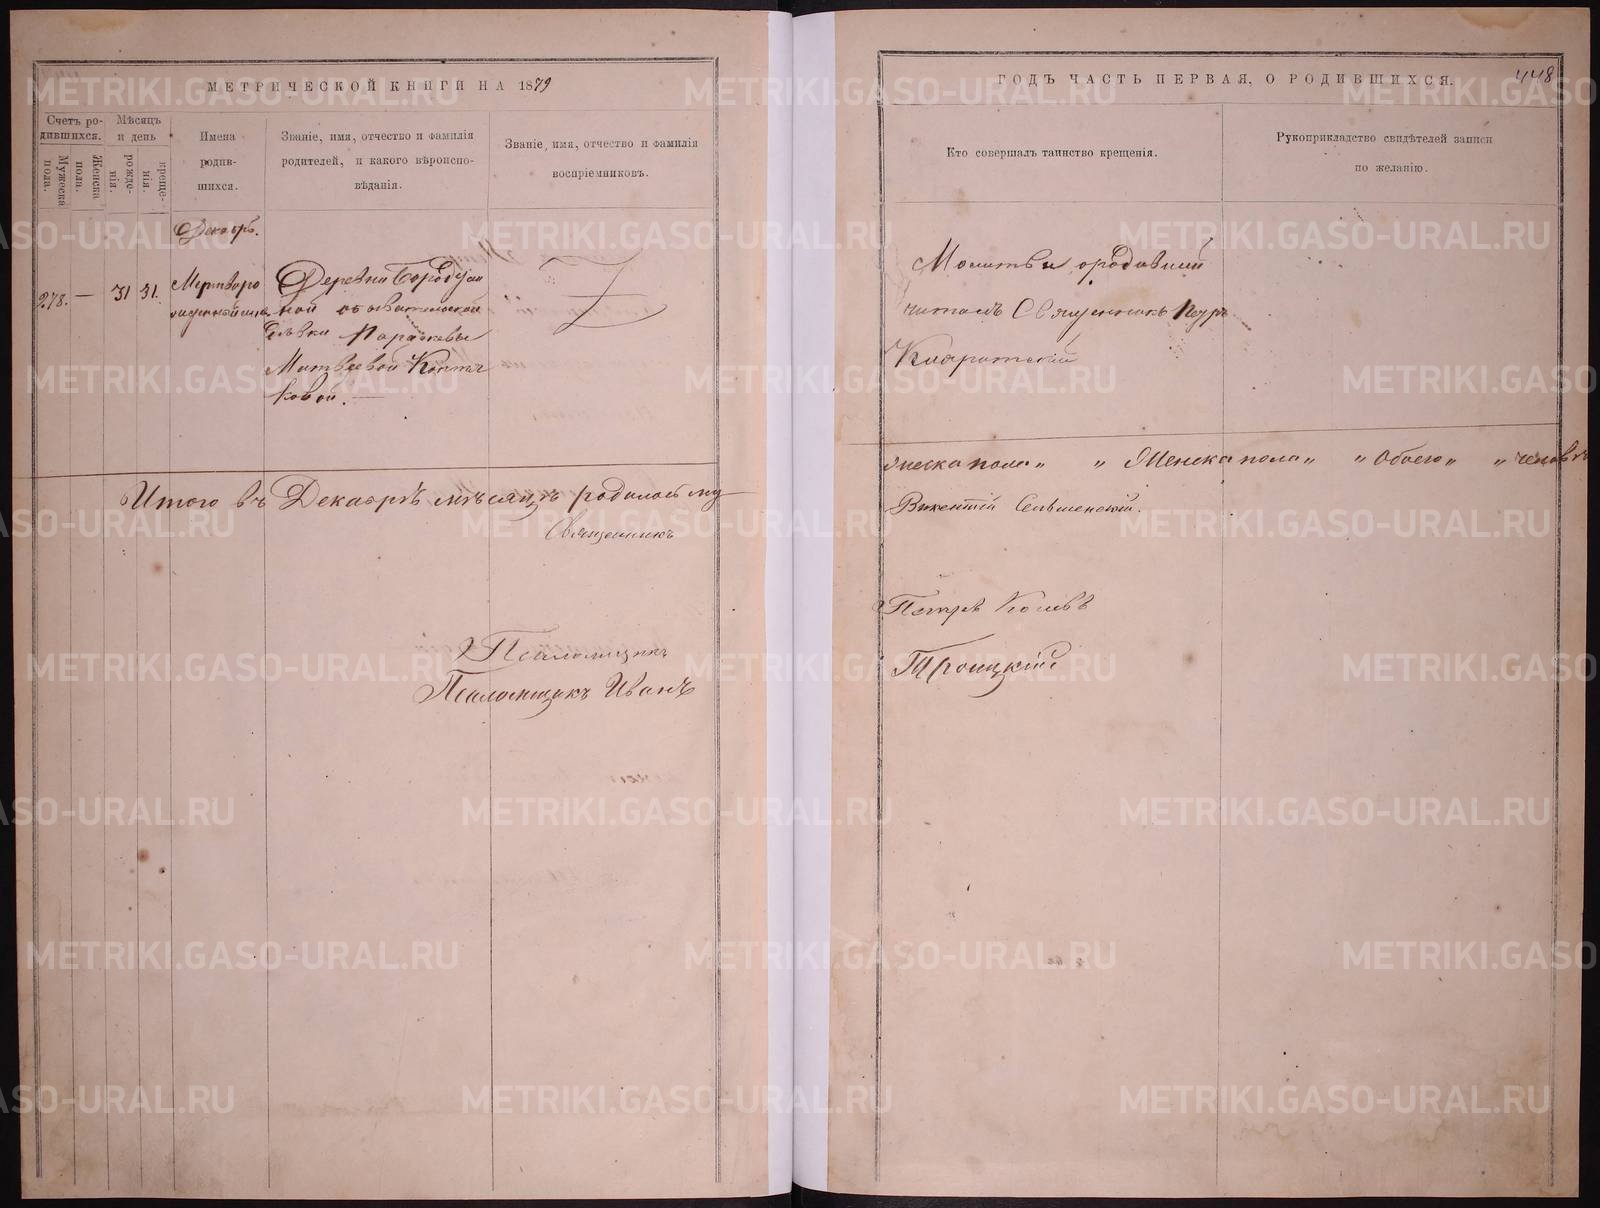 МЕТРИЧЕСКОЙ КНИГИ НА 1879
Счетъ ро-
дившихся.
Мужеска
пола.
Женска
пола.
Мѣсяцъ
и день
рожде-
нія.
креще-
нія.
Имена
родив-
шихся.
Званіе, имя, отчество и фамилія
родителей, и какого вѣроиспо-
вѣданія.
Званіе, имя, отчество и фамилія
воспріемниковъ.
Декабрь.
278. — 31 31.
Мертваро
Деревни
ной обывательской
дѣвки Парасковьи
Матвѣевой
ковой. —
Итого въ Декабрѣ мѣсяцѣ родилось му
Священникъ
Псаломщикъ
Псаломщикъ Иванъ
ГОДЪ ЧАСТЬ ПЕРВАЯ, О РОДИВШИХСЯ.
448
Кто совершалъ таинство крещенія.
Рукоприкладство свидѣтелей записи
по желанію.
Молитвы
читалъ Священникъ Петръ
жеска пола „ „ Женска пола „ „ Обоего „ „ человѣкъ
Викентій
Петръ
Троицкій
METRIKI.GASO-URAL.RU